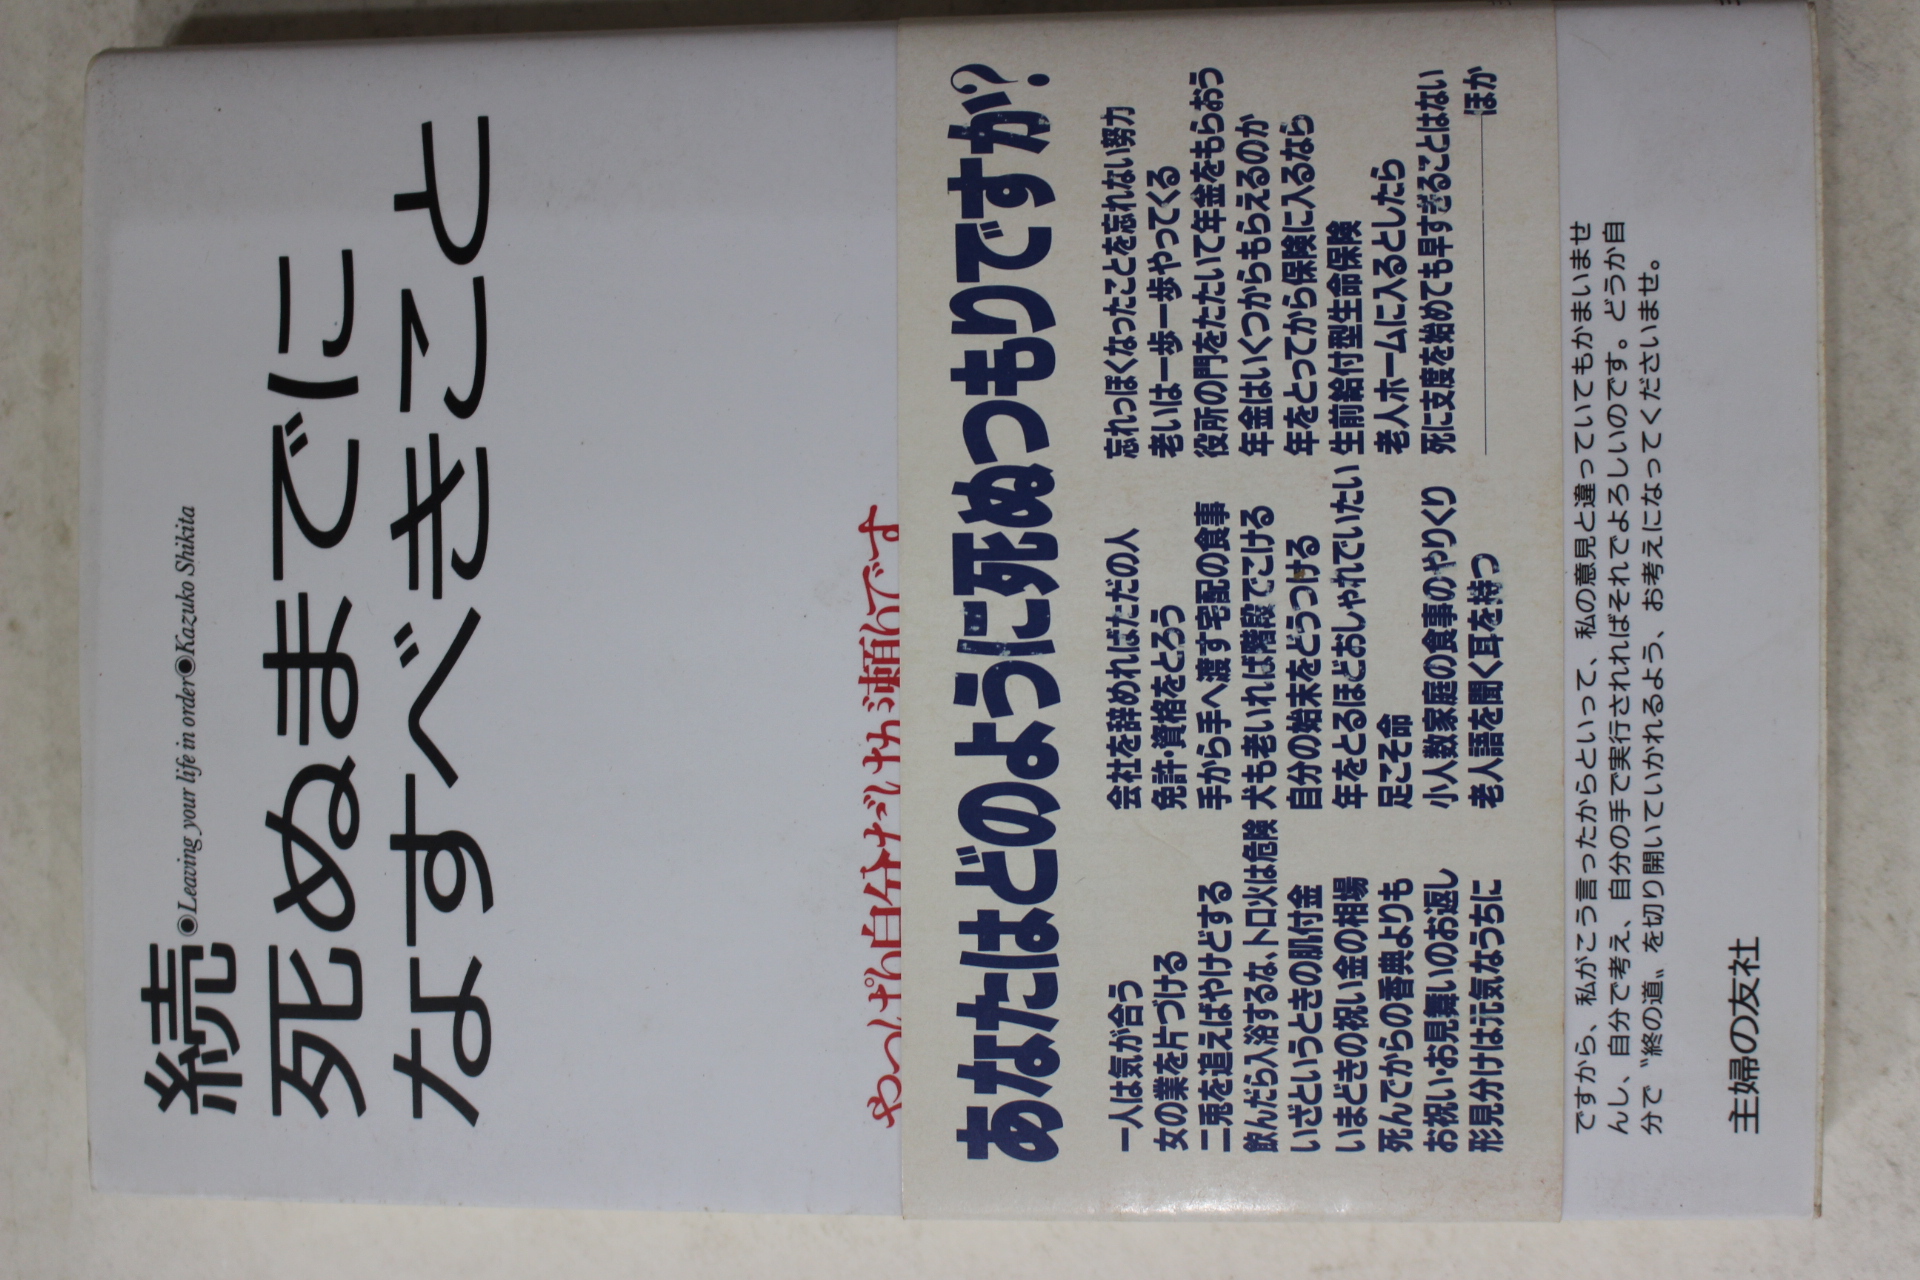 続
●Leaving your life in order●Kazuko Shikita
死ぬまでに
なすべきこと
やっぱり自分だけが頼りです
あなたはどのように死ぬつもりですか?
一人は気が合う
女の業を片づける
二兎を追えばやけどする
飲んだら入浴するな、トロ火は危険
いざというときの肌付金
いまどきの祝い金の相場
死んでからの香典よりも
お祝い・お見舞いのお返し
形見分けは元気なうちに
会社を辞めればただの人
免許・資格をとろう
手から手へ渡す宅配の食事
犬も老いれば階段でこける
自分の始末をどうつける
年をとるほどおしゃれでいたい
足こそ命
小人数家庭の食事のやりくり
老人語を聞く耳を持つ
忘れっぽくなったことを忘れない努力
老いは一歩一歩やってくる
役所の門をたたいて年金をもらおう
年金はいくつからもらえるのか
年をとってから保険に入るなら
生前給付型生命保険
老人ホームに入るとしたら
死に支度を始めても早すぎることはない
ほか
ですから、私がこう言ったからといって、私の意見と違っていてもかまいませ
んし、自分で考え、自分の手で実行されればそれでよろしいのです。どうか自
分で〝終の道〟を切り開いていかれるよう、お考えになってくださいませ。
主婦の友社